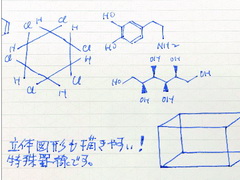 Cl H
H Cl
Cl H
H Cl
Cl H
H Cl
HO
HO NH2
OH OH
HO OH
OH OH
立体図形も描きやすい!
特殊器様です。